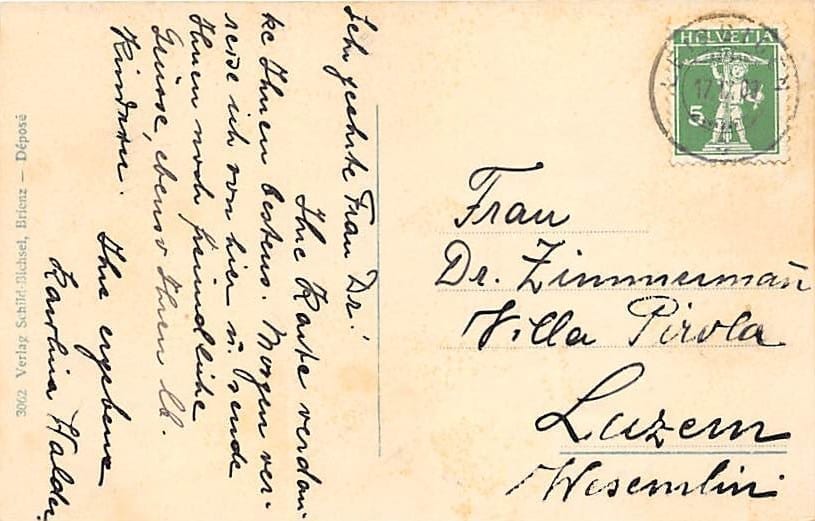 Sehr geehrte Frau Dr.!
Ihre Karte verdan
ke Ihnen bestens. Morgen ver-
reise ich von hier u. sende
Ihnen noch freundliche
Grüsse, ebenso Ihren lb.
Kindern.
Ihre ergebene
Karolina Halder.
3062 Verlag Schild-Bichsel, Brienz — Déposé
HELVETIA
5
Frau
Dr. Zimmermann
Villa Pirola
Luzern
Wesemlin